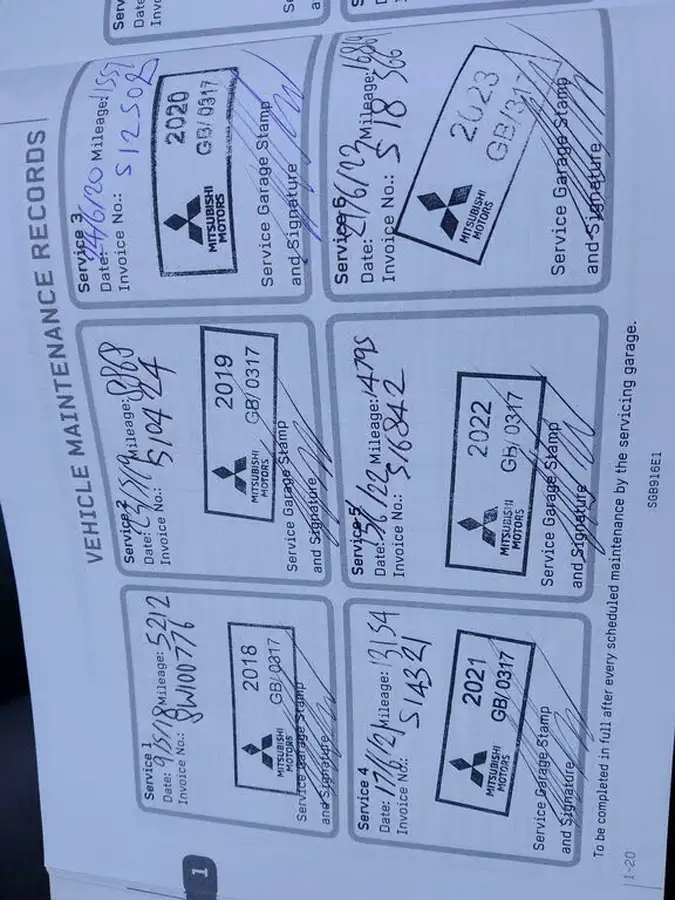 VEHICLE MAINTENANCE RECORDS
Service 1
Date: 9/5/18 Mileage: 5212
Invoice No.: BW100776
MITSUBISHI
MOTORS
2018
GB/0317
Service Garage Stamp
and Signature
Service 2
Mileage: 8868
Invoice No.: S10424
MITSUBISHI
MOTORS
2019
GB/0317
Service Garage Stamp
and Signature
Service 3
Date: 24/6/20 Mileage:
Invoice No.: S12502
MITSUBISHI
MOTORS
2020
GB/0317
Service Garage Stamp
and Signature
Service 4
Date: 17/6/21 Mileage: 13154
Invoice No.: S14321
MITSUBISHI
MOTORS
2021
GB/0317
Service Garage Stamp
and Signature
Service 5
Date: Mileage: 14795
Invoice No.: S16842
MITSUBISHI
MOTORS
2022
GB/0317
Service Garage Stamp
and Signature
Service 6
Date: 21/6/23 Mileage:
Invoice No.: S18566
MITSUBISHI
MOTORS
2023
GB/317
Service Garage Stamp
and Signature
To be completed in full after every scheduled maintenance by the servicing garage.
1-20
SGB916E1
1